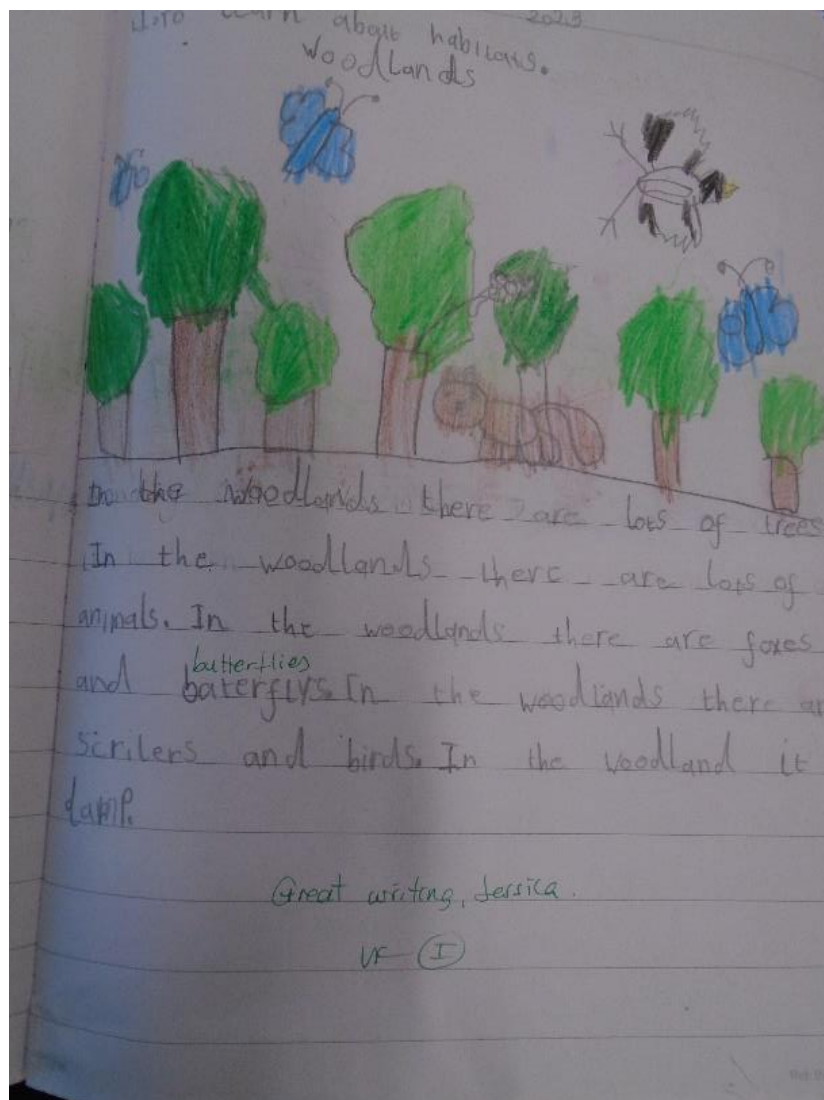 to learn about habitats.
2023
Woodlands
In the woodlands there are lots of trees
In the woodlands there are lots of
animals. In the woodlands there are foxes
butterflies
and baterflys. In the woodlands there ar
scrilers and birds. In the woodland it
damp.
Great writing, Jessica.
VF I